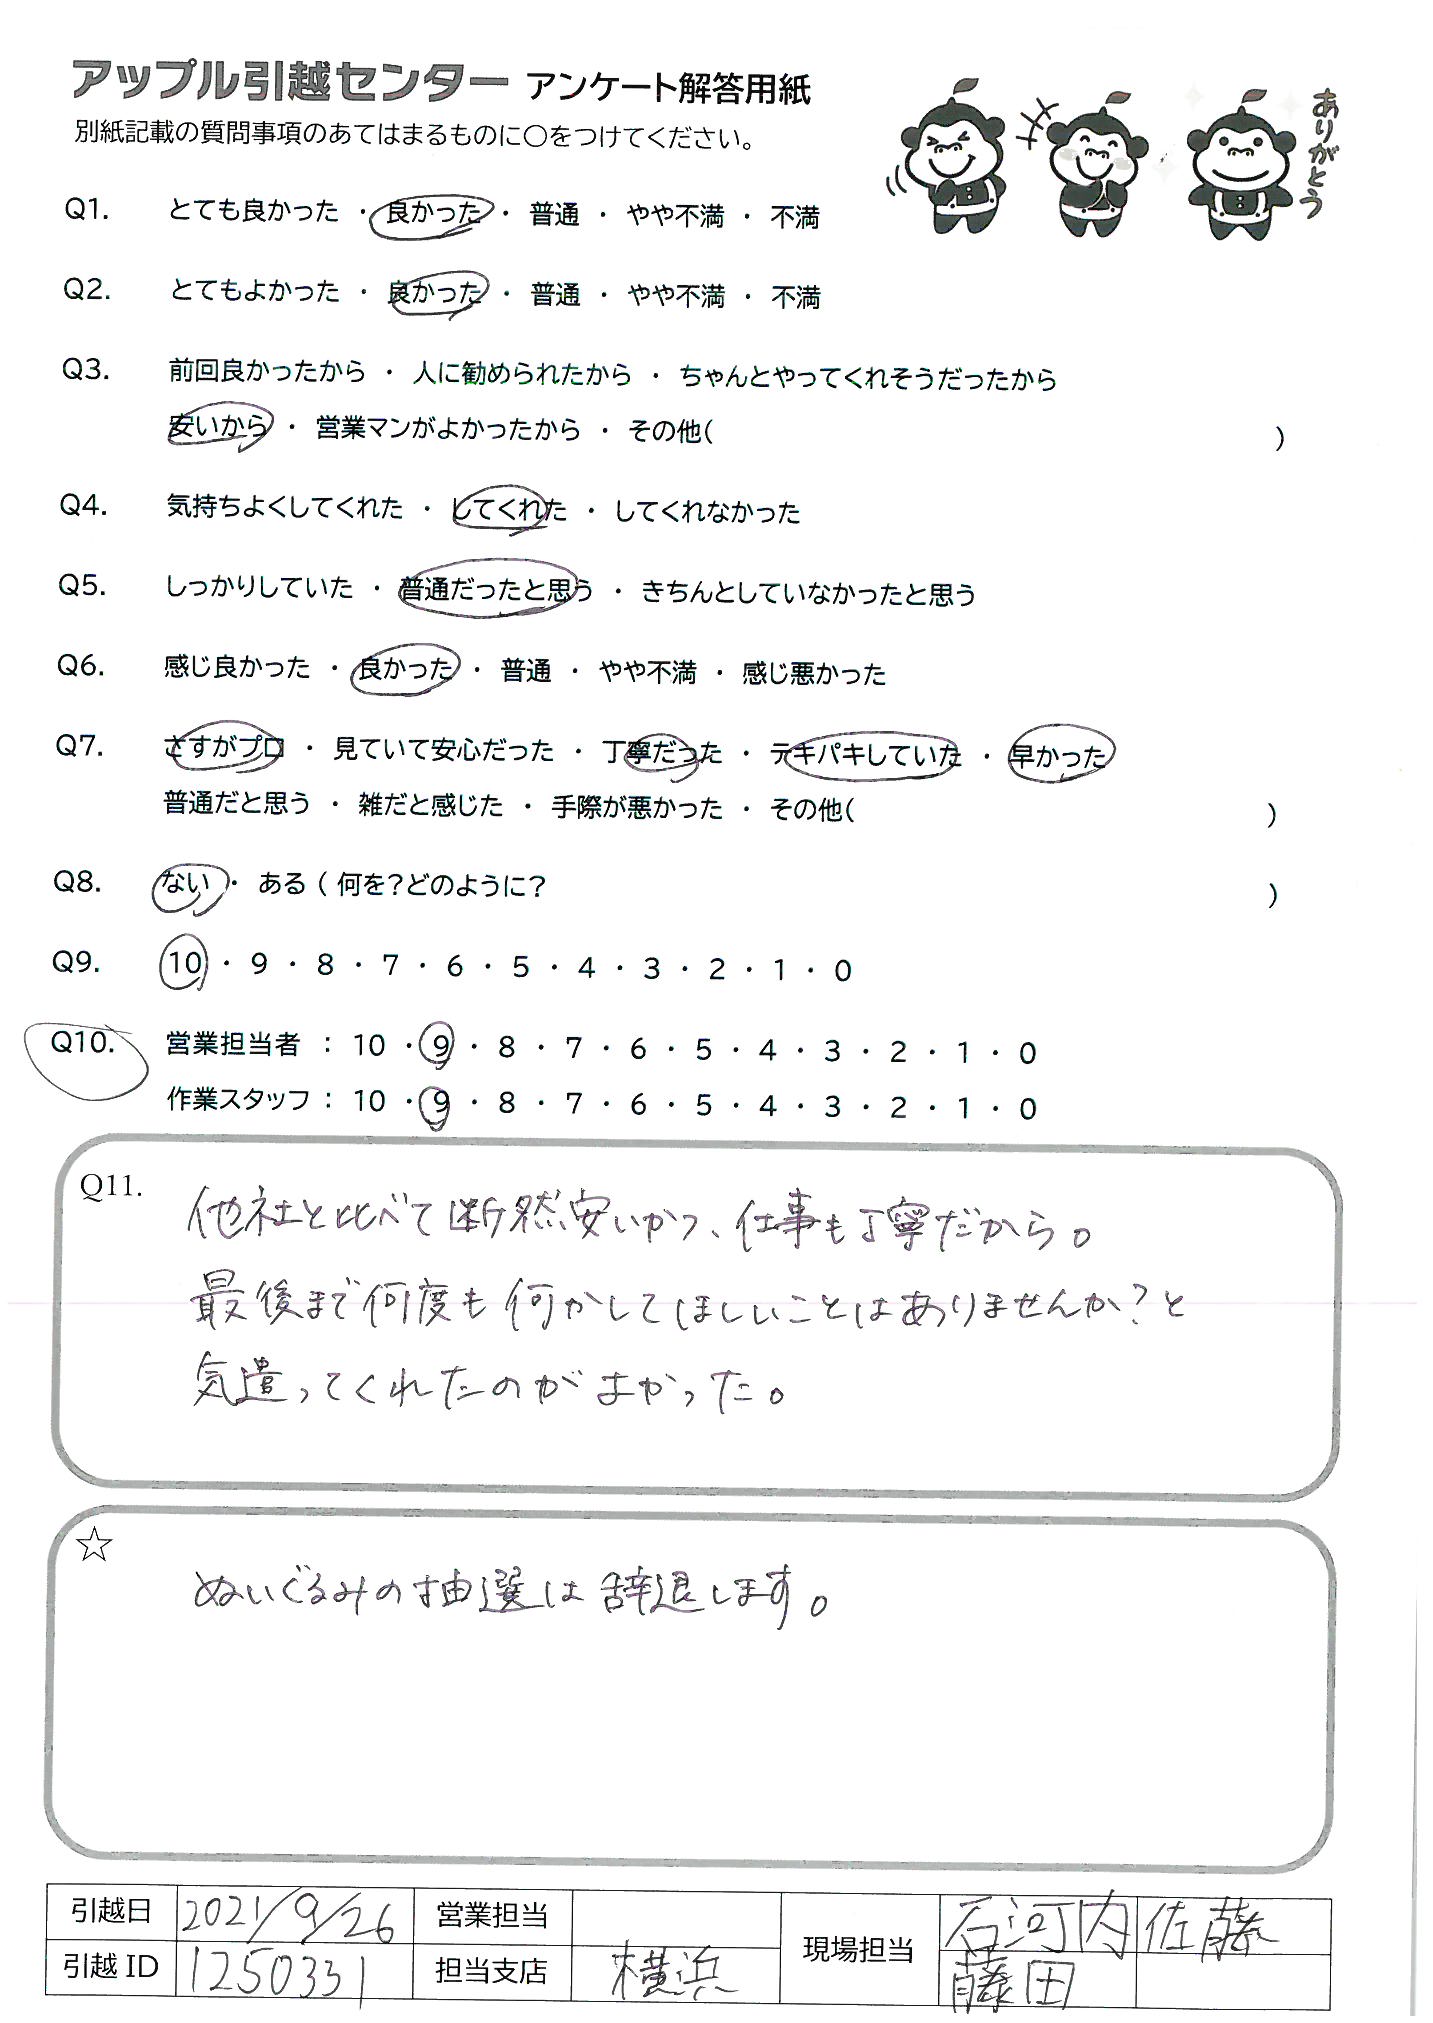 アップル引越センター アンケート解答用紙
別紙記載の質問事項のあてはまるものに○をつけてください。
ありがとう
Q1. とても良かった ・ 良かった ・ 普通 ・ やや不満 ・ 不満
Q2. とてもよかった ・ 良かった ・ 普通 ・ やや不満 ・ 不満
Q3. 前回良かったから ・ 人に勧められたから ・ ちゃんとやってくれそうだったから
安いから ・ 営業マンがよかったから ・ その他( )
Q4. 気持ちよくしてくれた ・ してくれた ・ してくれなかった
Q5. しっかりしていた ・ 普通だったと思う ・ きちんとしていなかったと思う
Q6. 感じ良かった ・ 良かった ・ 普通 ・ やや不満 ・ 感じ悪かった
Q7. さすがプロ ・ 見ていて安心だった ・ 丁寧だった ・ テキパキしていた ・ 早かった
普通だと思う ・ 雑だと感じた ・ 手際が悪かった ・ その他( )
Q8. ない ・ ある ( 何を?どのように? )
Q9. 10 ・ 9 ・ 8 ・ 7 ・ 6 ・ 5 ・ 4 ・ 3 ・ 2 ・ 1 ・ 0
Q10. 営業担当者 : 10 ・ 9 ・ 8 ・ 7 ・ 6 ・ 5 ・ 4 ・ 3 ・ 2 ・ 1 ・ 0
作業スタッフ : 10 ・ 9 ・ 8 ・ 7 ・ 6 ・ 5 ・ 4 ・ 3 ・ 2 ・ 1 ・ 0
Q11. 他社と比べて断然安いかつ、仕事も丁寧だから。
最後まで何度も何かしてほしいことはありませんか?と
気遣ってくれたのがよかった。
☆
ぬいぐるみの抽選は辞退します。
引越日 2021/9/26 営業担当 現場担当 石河内 佐藤
引越ID 1250331 担当支店 横浜 藤田